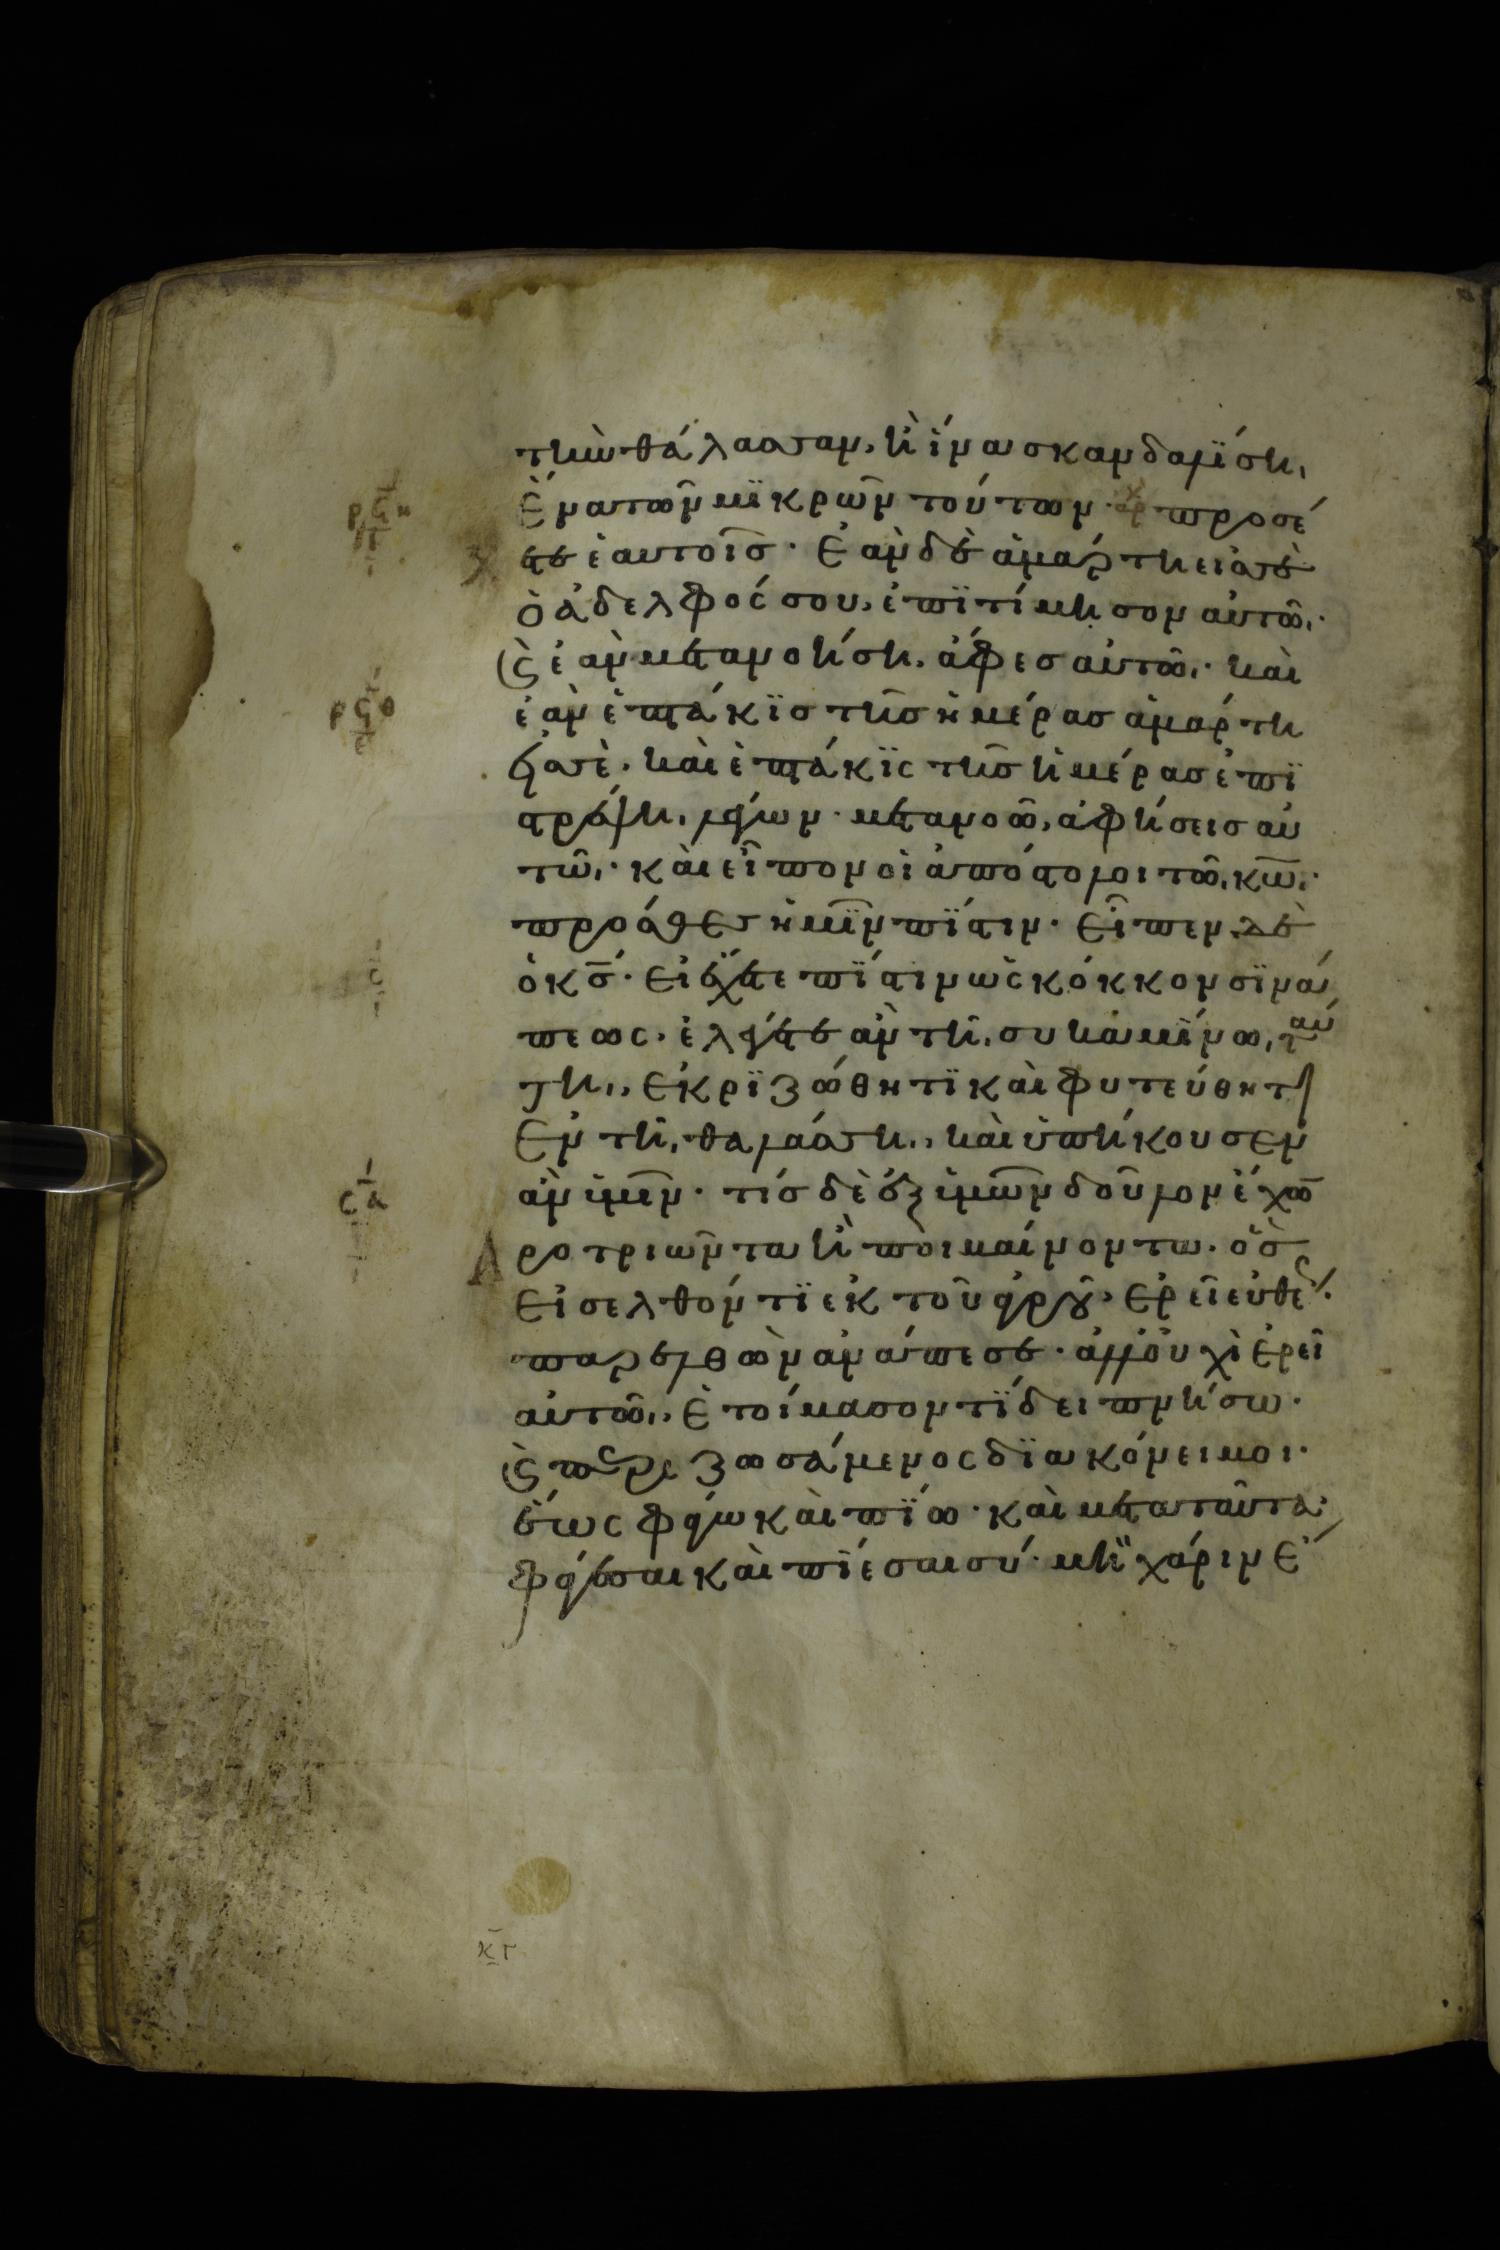 τὴν θάλασσαν, ἢ ἵνα σκανδαλΐση,
ἕνα τῶν μϊκρῶν τούτων· αρχ προσέ
χετε ἑαυτοῖς· Ἐὰν δὲ ἁμάρτη εἰς σὲ
ὁ ἀδελφός σου, ἐπϊτίμησον αὐτῶ,·
ϗ ἐὰν μετανοήση, ἄφες αὐτῶ,· καὶ
ἐὰν ἑπτάκϊς τῆς ἡμέρας ἁμάρτη
εἰς σὲ. καὶ ἑπτάκϊς τῆς ἡμέρας ἐπϊ
στρέψη, λέγων· μετανοῶ, ἀφήσεις αὐ
τῶ,· καὶ εἶπον οἱ ἀπόστολοι τῶ, κ̅ω̅,·
πρόσθες ἡμῖν πϊστιν· Εἶπεν δὲ
ὁ κ̅ς̅· εἰ ἔχετε πϊστιν ὡς κόκκον σϊνά
πεως· ἐλέγετε ἂν τῆ, συκαμΐνω, ταύ
τη,, ἐκρϊζώθητϊ καὶ φυτεύθητι
ἐν τῆ, θαλάσση,, καὶ ὑπήκουσεν
ἂν ὑμῖν· τίς δὲ ἐξ ὑμῶν δοῦλον ἔχω̅
ἀροτριῶντα ἢ ποιμαίνοντα· ὃς
εἰσελθόντϊ ἐκ τοῦ ἀγροῦ· ἐρεῖ εὐθέως·
παρελθὼν ἀνάπεσε· ἀλλ' οὐχὶ ἐρεῖ
αὐτῶ,, ἑτοίμασον τϊ δειπνήσω·
ϗ περιζωσάμενος δϊακόνει μοι·
ἕως φάγω καὶ πΐω· καὶ μετὰ ταῦτα
φάγεσαι καὶ πΐεσαι σύ· μὴ χάριν ἔ
ρϟη
ρϟθ
σ
σα
κγ